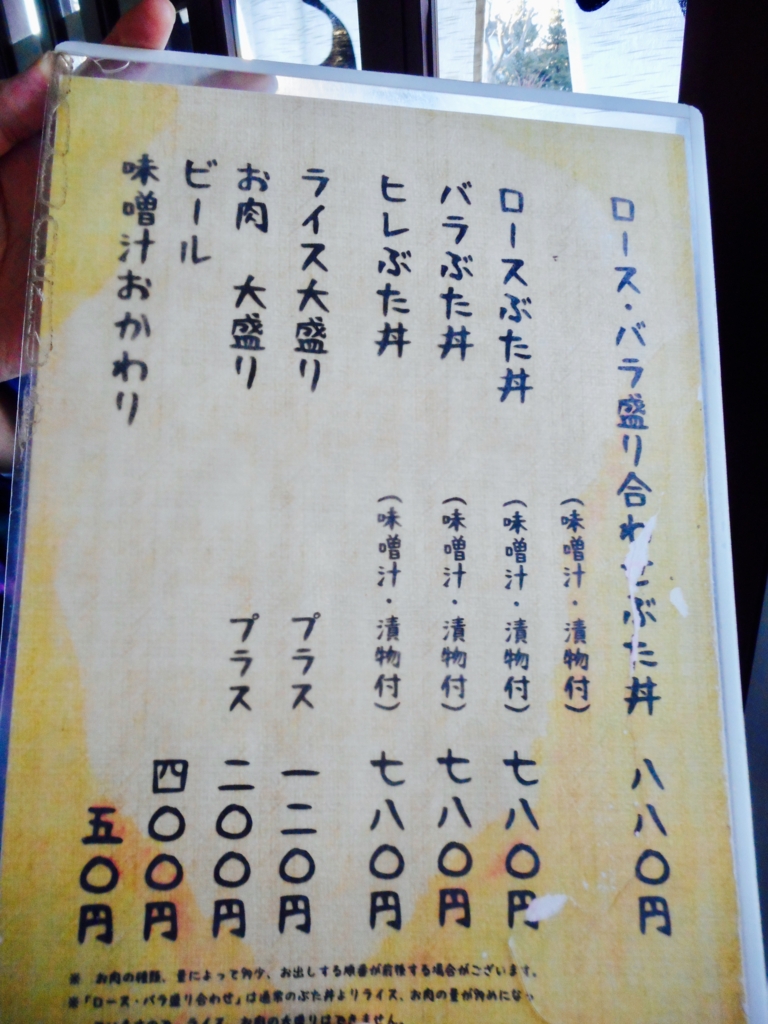 ロース・バラ盛り合わせぶた丼 八八〇円
(味噌汁・漬物付)
ロースぶた丼 (味噌汁・漬物付) 七八〇円
バラぶた丼 (味噌汁・漬物付) 七八〇円
ヒレぶた丼 (味噌汁・漬物付) 七八〇円
ライス大盛り プラス 一二〇円
お肉 大盛り プラス 二〇〇円
ビール 四〇〇円
味噌汁おかわり 五〇円
※ お肉の種類、量によって多少、お出しする順番が前後する場合がございます。
※「ロース・バラ盛り合わせ」は通常のぶた丼よりライス、お肉の量が多めになっ
ていますので、ライス、お肉の大盛りはできません。